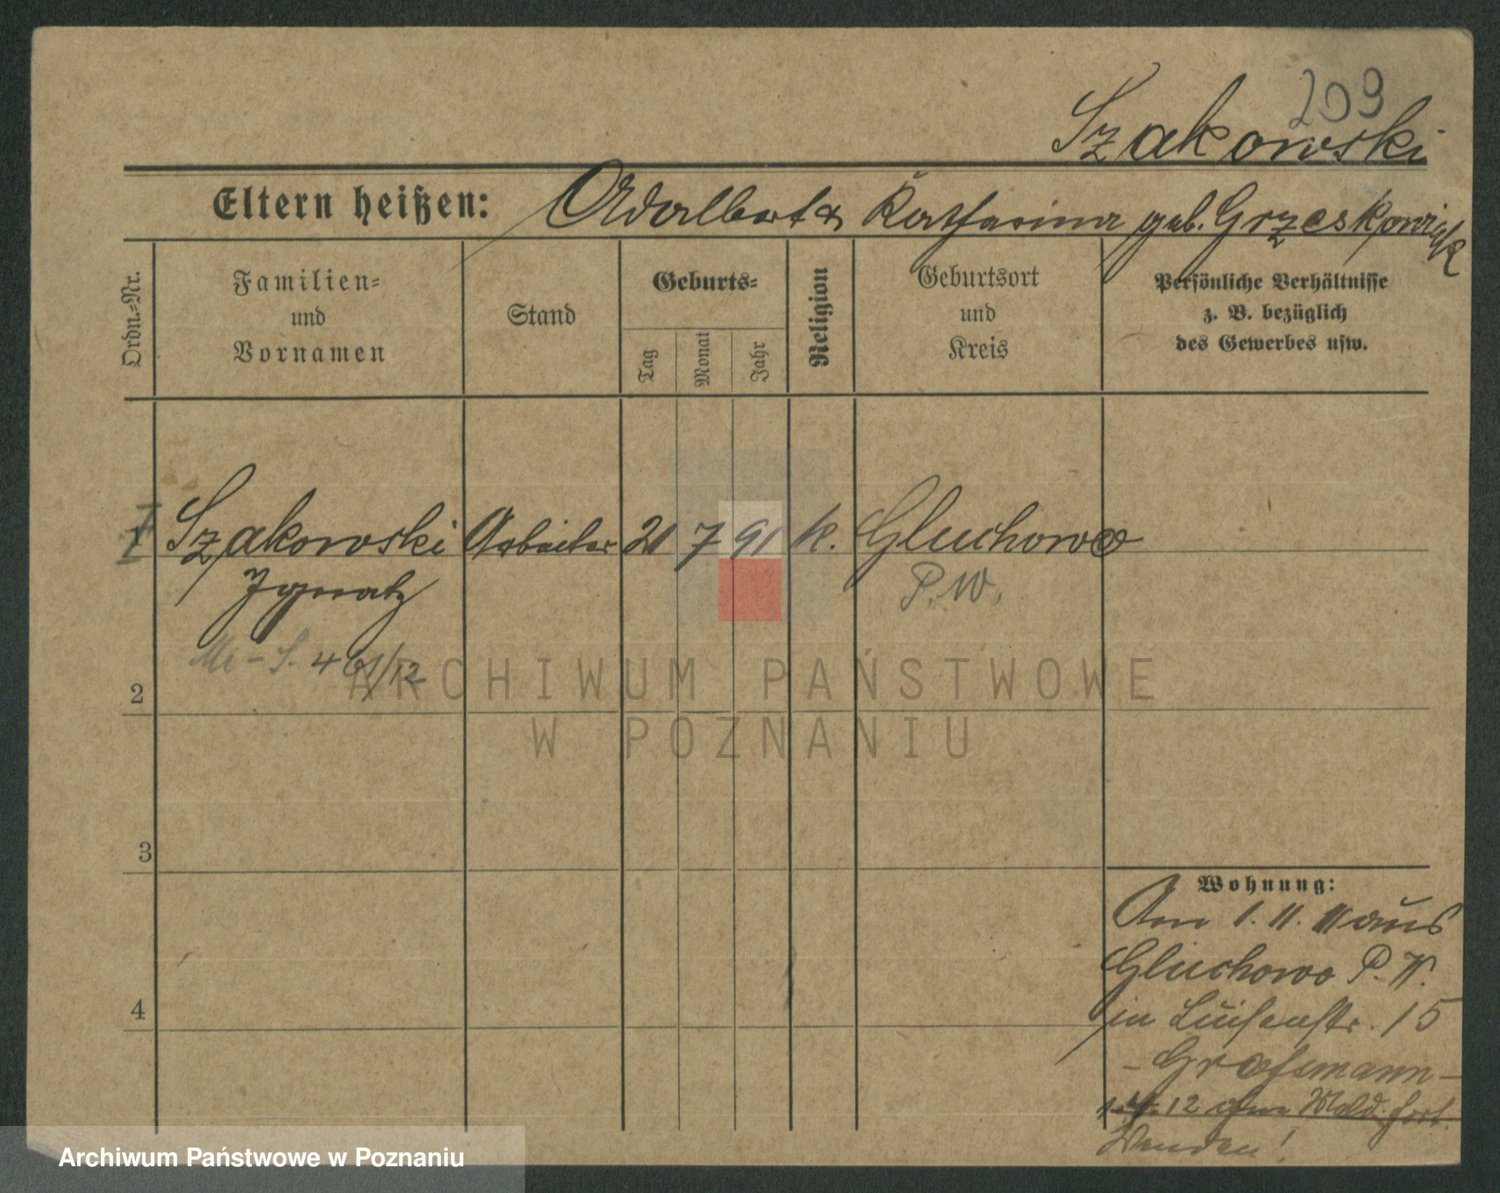 209
Szakowski
Eltern heißen: Adalbert & Katharina geb. Grzeskowiak
Ordn.-Nr.
Familien-
und
Vornamen
Stand
Geburts-
Tag
Monat
Jahr
Religion
Geburtsort
und
Kreis
Persönliche Verhältnisse
z. B. bezüglich
des Gewerbes usw.
1 Szakowski Arbeiter 21 7 91 k. Gluchowo
Ignatz P. W.
461/12
2
3
4
Wohnung:
Am 1. 11. 11 aus
Gluchowo P. W.
in Luisenstr. 15
- Grossmann -
12 ohne Meld. fort.
Wenden!
ARCHIWUM PAŃSTWOWE
W POZNANIU
Archiwum Państwowe w Poznaniu